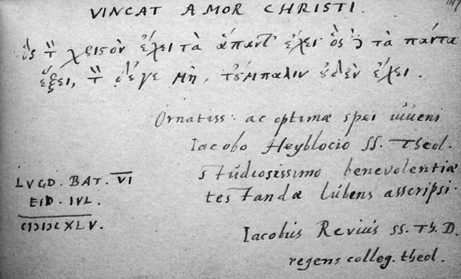 VINCAT AMOR CHRISTI.
ὃς τ χριςὸν ἔχει τὰ ἅπαντ' ἔχει· ὃς τὰ πάντα
ἔχει, τ μὴ, τἔμπαλιν ἐδὲν ἔχει.
Ornatiss: ac optimæ spei iuveni
Iacobo Heyblocio SS. Theol.
studiosissimo benevolentiæ
testandæ lubens asscripsi.
LVGD. BAT. VI
EID. IVL.
CIƆIƆCXLV.
Iacobus Revius SS. Th. D.
regens colleg. theol.